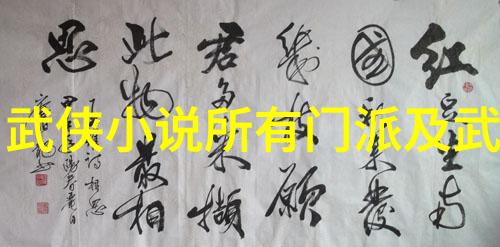 武侠小说所有门派及武
紅豆生南
國春来發
幾枝願
君多采擷
此物最相
思